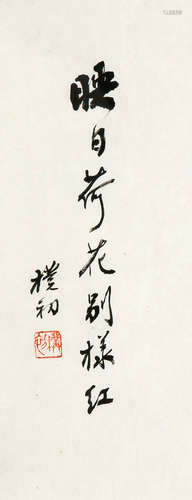 暎日荷花别樣红
樸初